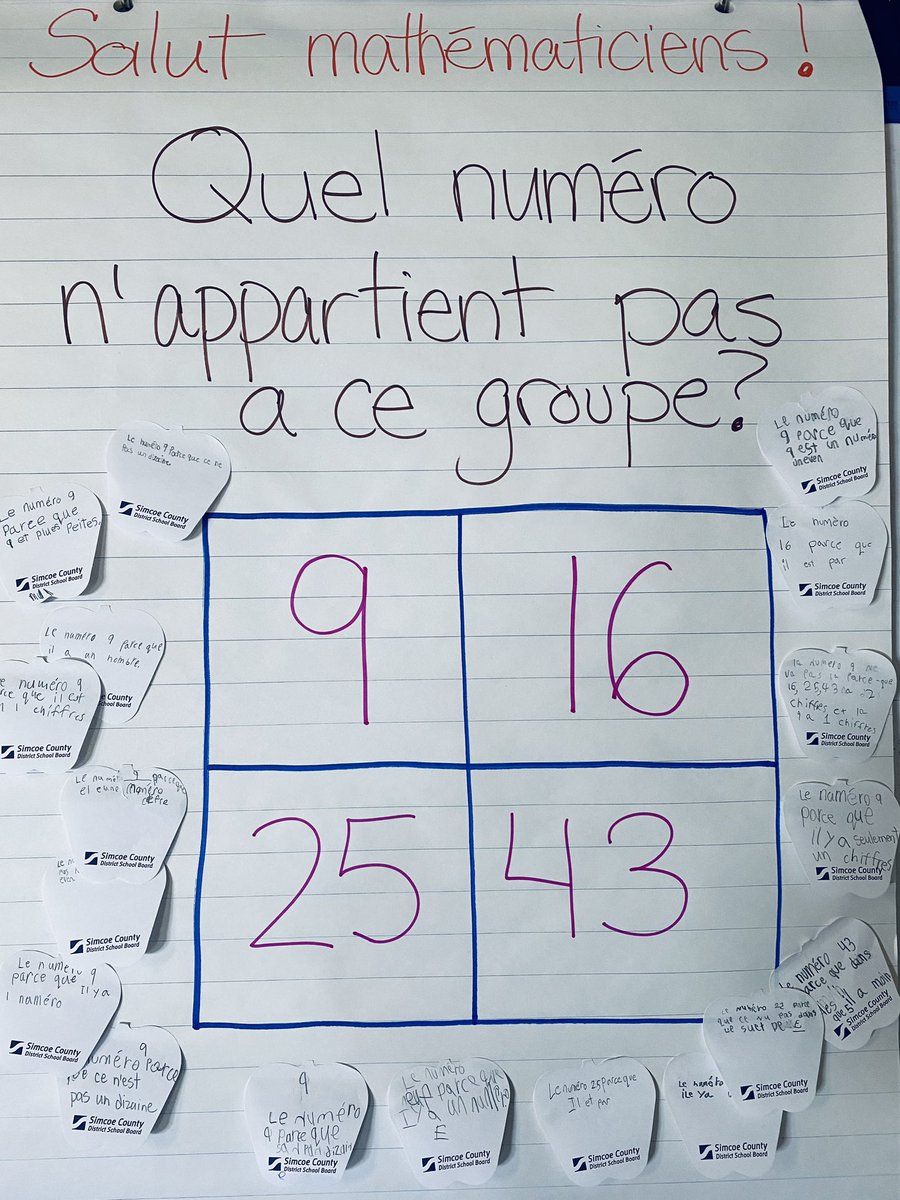 Salut mathématiciens !
Quel numéro
n'appartient pas
a ce groupe?
Le numéro
9 Parce que
9 est un numéro
uneven
Simcoe County
District School Board
Le numéro 9 Parce que ce ne
pas un dizaine
Simcoe County
District School Board
Le numéro 9
Parce que
9 et plues petites.
Simcoe County
District School Board
Le numéro
16 parce que
il est par
Simcoe County
District School Board
9
16
25
43
Le numéro 9 parce que
il a un nombre.
County
School Board
numéro 9
rce que il est
1 chiffres
Simcoe County
District School Board
la numéro 9 ne
va pas la Parce-que
16, 25, 43 a 2
chiffres et la
9 a 1 chiffres
Simcoe County
District School Board
Le numé 9
Simcoe County
District School Board
Le numéro 9
parce que
il y a seulement
un chiffres
Simcoe County
District School Board
Simcoe County
District School Board
Le numéro 9
parce que Il y a
1 naméro
Simcoe County
District School Board
numéro 43
parce que dans
Simcoe County
District School Board
numéro 22 parce
que ce
pas dans
Simcoe County
District School Board
9
numéro Parce
ce n'est
pas un dizaine
Simcoe County
District School Board
9
Le numéro
9 Parce que
Simcoe County
District School Board
Le numéro
parce que
Il y a un numéro
E
Simcoe County
District School Board
Le numéro 25 Parce que
Il et par
Simcoe County
District School Board
Le numéro
ile ya
Simcoe County
District School Board